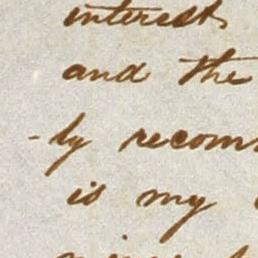 interest,
and the
-ly recom
is my